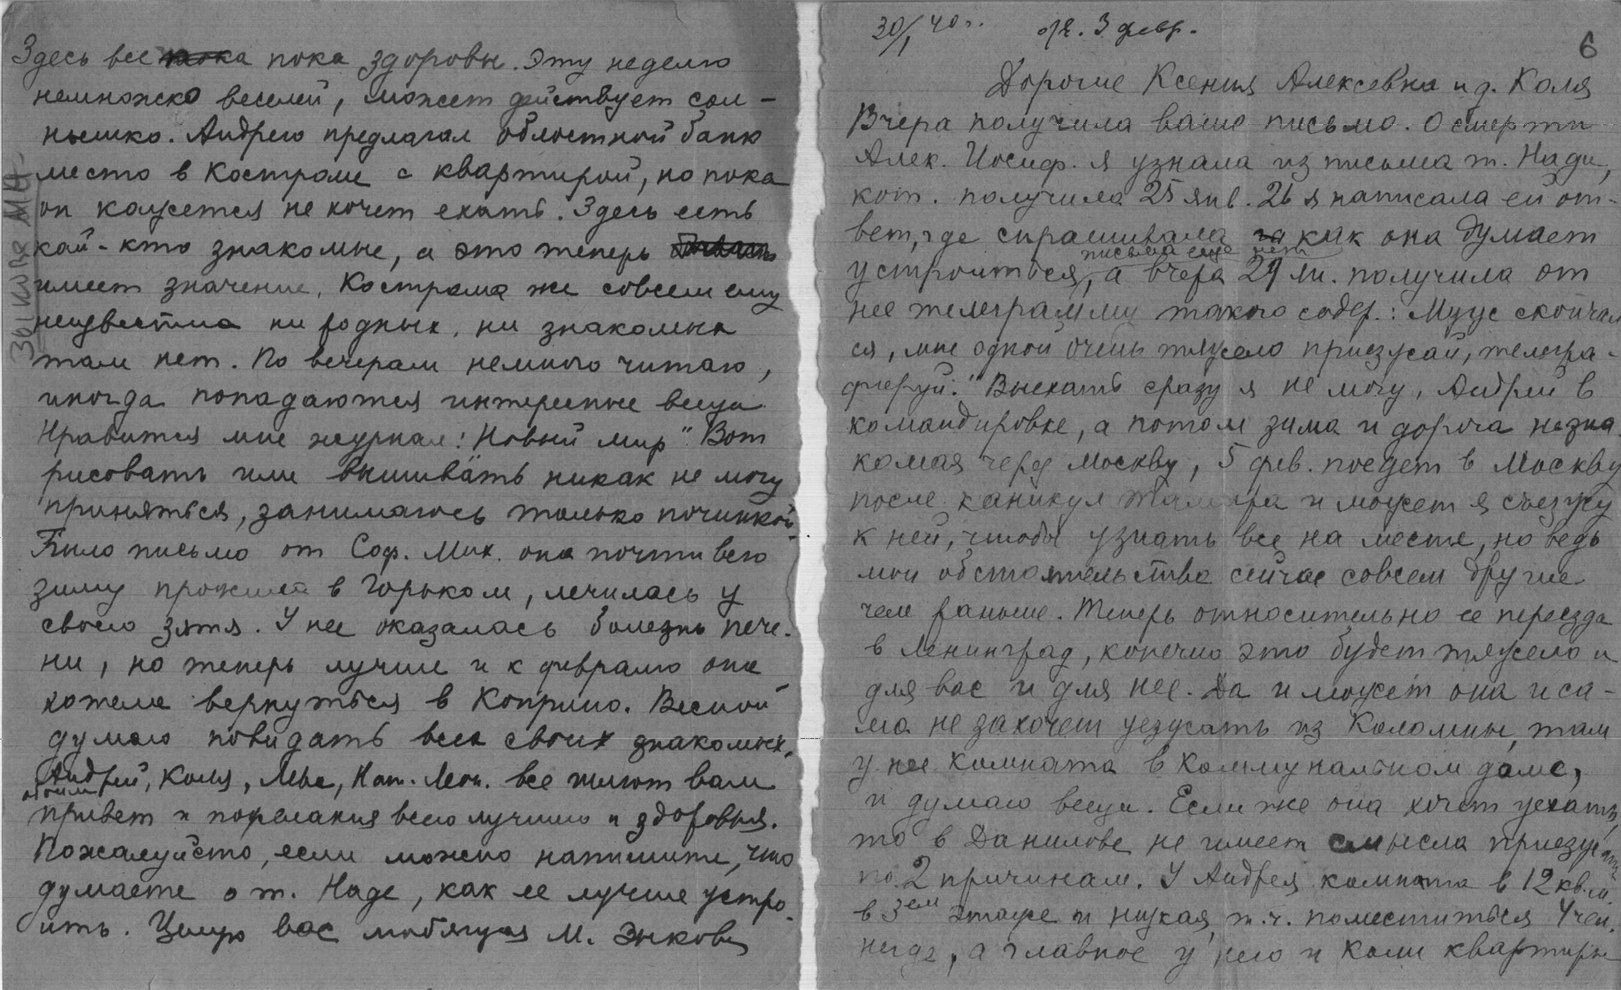 Здесь все пока здоровы. Эту неделю
немножко веселей, может действует сол-
нышко. Андрею предлагал областной банк
место в Костроме с квартирой, но пока
он кажется не хочет ехать. Здесь есть
кой-кто знакомые, а это теперь
имеет значение. Кострома же совсем ему
неизвестна ни родных, ни знакомых
там нет. По вечерам немного читаю,
иногда попадаются интересные вещи.
Нравится мне журнал: Новый мир". Вот
рисовать или вышивать никак не могу
приняться, занимаюсь только починкой.
Было письмо от Соф. Мих. она почти всю
зиму прожила в Горьком, лечилась у
своего зятя. У нее оказалась болезнь пече-
ни, но теперь лучше и к февралю она
хотела вернуться в Коприно. Весной
думаю повидать всех своих знакомых.
Андрей, Коля, Нат. Леон. все шлют вам
обоим
привет и пожелания всего лучшего и здоровья.
Пожалуйста, если можно напишите, что
думаете о т. Наде, как ее лучше устро-
ить. Целую вас любящая М.
30/I 40 г. 3 февр.
6
Дорогие Ксения Алексевна и д. Коля
Вчера получила ваше письмо. О смерти
Алек. Иосиф. я узнала из письма т. Нади,
кот. получила 25 янв. 26 я написала ей от-
вет, где спрашивала как она думает
письма еще нет
устроиться, а вчера 29 получила от
нее телеграмму такого содер.: Муус скончал
ся, мне одной очень тяжело приезжай, телегра-
фируй." Выехать сразу я не могу, Андрей в
командировке, а потом зима и дорога незна
комая через Москву, 5 фев. поедет в Москву
после каникул Тамара и может я съезжу
к ней, чтобы узнать все на месте, но ведь
мои обстоятельства сейчас совсем другие
чем раньше. Теперь относительно ее переезда
в Ленинград, конечно это будет тяжело и
для вас и для нее. Да и может она и са-
ма не захочет уезжать из Коломны, там
у нее комната в коммунальном доме,
и думаю вещи. Если же она хочет уехать,
то в Данилове не имеет смысла приезжать
по 2 причинам. У Андрея комната в 12 кв. м.
в 3ем этаже и низкая, т.ч. поместиться 4 чел.
негде, а главное у него и Коли квартиры